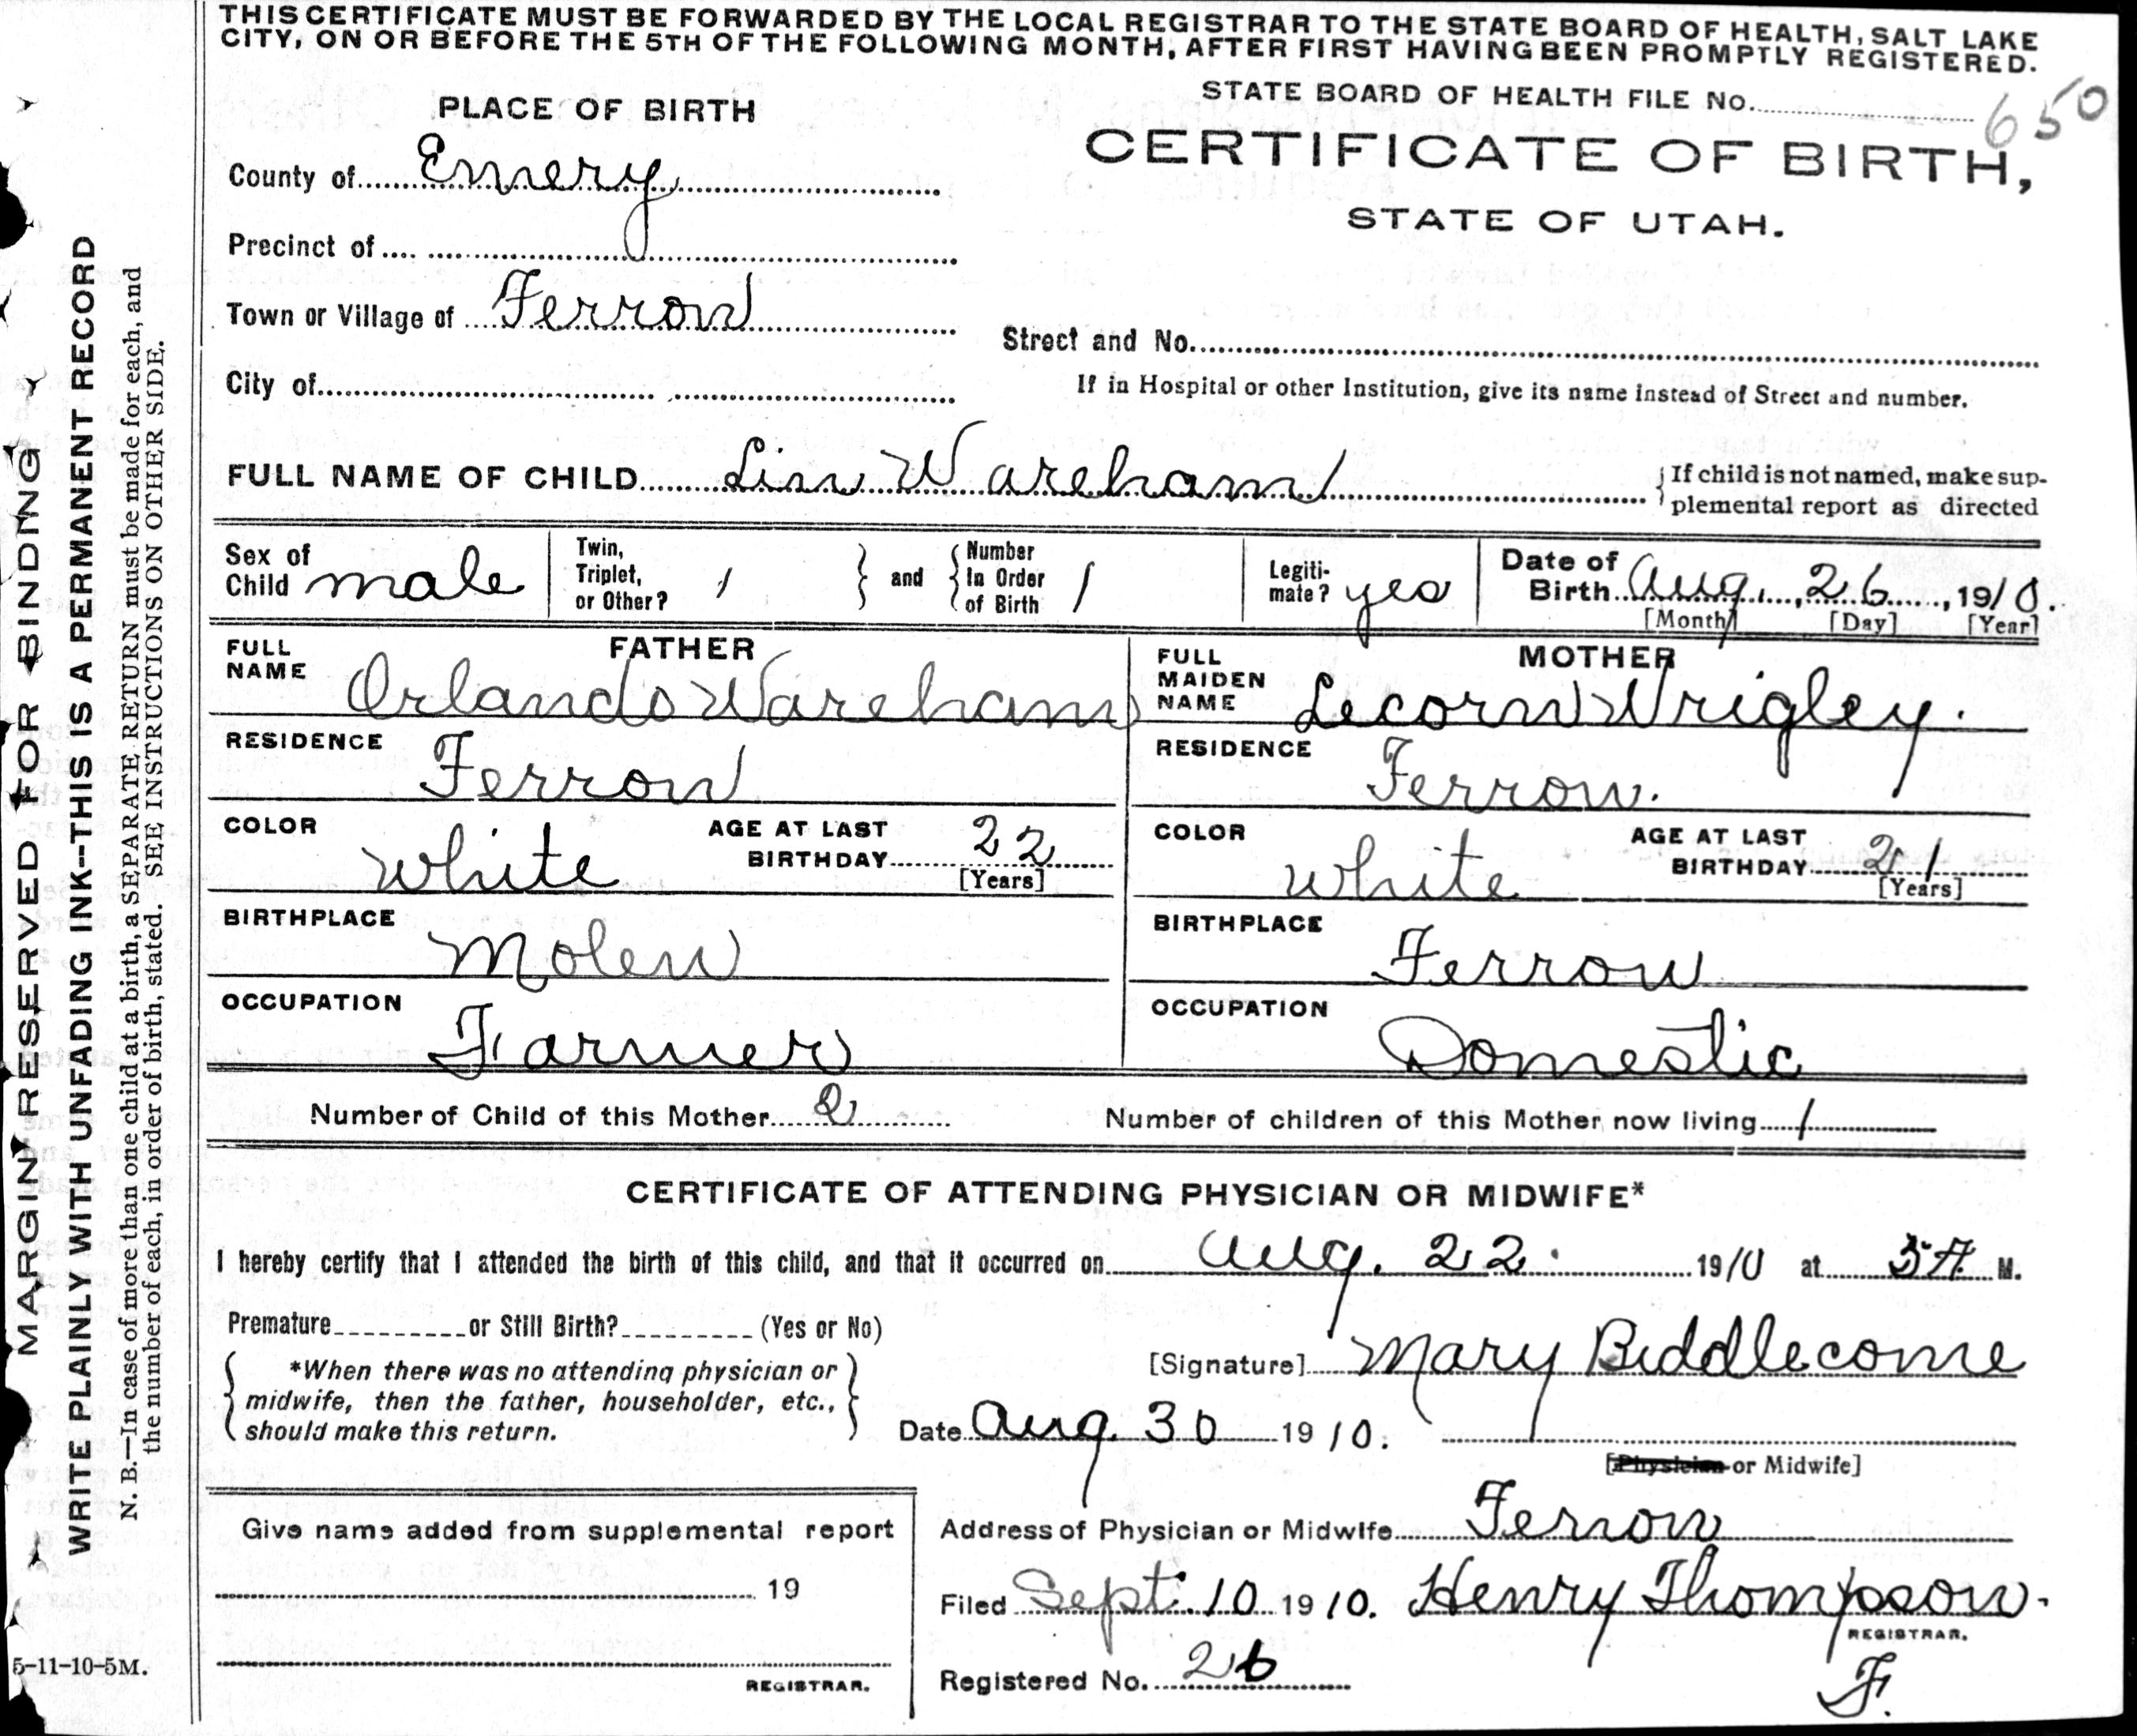 THIS CERTIFICATE MUST BE FORWARDED BY THE LOCAL REGISTRAR TO THE STATE BOARD OF HEALTH, SALT LAKE
CITY, ON OR BEFORE THE 5TH OF THE FOLLOWING MONTH, AFTER FIRST HAVING BEEN PROMPTLY REGISTERED.
STATE BOARD OF HEALTH FILE No. 650
PLACE OF BIRTH
CERTIFICATE OF BIRTH,
STATE OF UTAH.
County of Emery
Precinct of
Town or Village of Ferron
Street and No.
City of
If in Hospital or other Institution, give its name instead of Street and number.
FULL NAME OF CHILD Linn Wareham
If child is not named, make sup-
plemental report as directed
Sex of Child male
Twin, Triplet, or Other? 1
and
Number In Order of Birth 1
Legiti-mate? yes
Date of Birth Aug. 26, 1910.
[Month] [Day] [Year]
FATHER
FULL NAME Orlando Wareham
RESIDENCE Ferron
COLOR White
AGE AT LAST BIRTHDAY 22
[Years]
BIRTHPLACE Molen
OCCUPATION Farmer
MOTHER
FULL MAIDEN NAME Lecorn Wrigley.
RESIDENCE Ferron.
COLOR White
AGE AT LAST BIRTHDAY 21
[Years]
BIRTHPLACE Ferron
OCCUPATION Domestic
Number of Child of this Mother 2
Number of children of this Mother now living 1
CERTIFICATE OF ATTENDING PHYSICIAN OR MIDWIFE*
I hereby certify that I attended the birth of this child, and that it occurred on Aug. 22. 1910 at 5 A. M.
Premature or Still Birth? (Yes or No)
*When there was no attending physician or
midwife, then the father, householder, etc.,
should make this return.
[Signature] Mary Biddlecome
Date Aug. 30 1910.
[Physician or Midwife]
Give name added from supplemental report
19
REGISTRAR.
Address of Physician or Midwife Ferron
Filed Sept. 10 1910. Henry Thompson.
REGISTRAR.
Registered No. 26
F.
MARGIN RESERVED FOR BINDING
WRITE PLAINLY WITH UNFADING INK--THIS IS A PERMANENT RECORD
N. B.—In case of more than one child at a birth, a SEPARATE RETURN must be made for each, and
the number of each, in order of birth, stated. SEE INSTRUCTIONS ON OTHER SIDE.
5-11-10-5M.